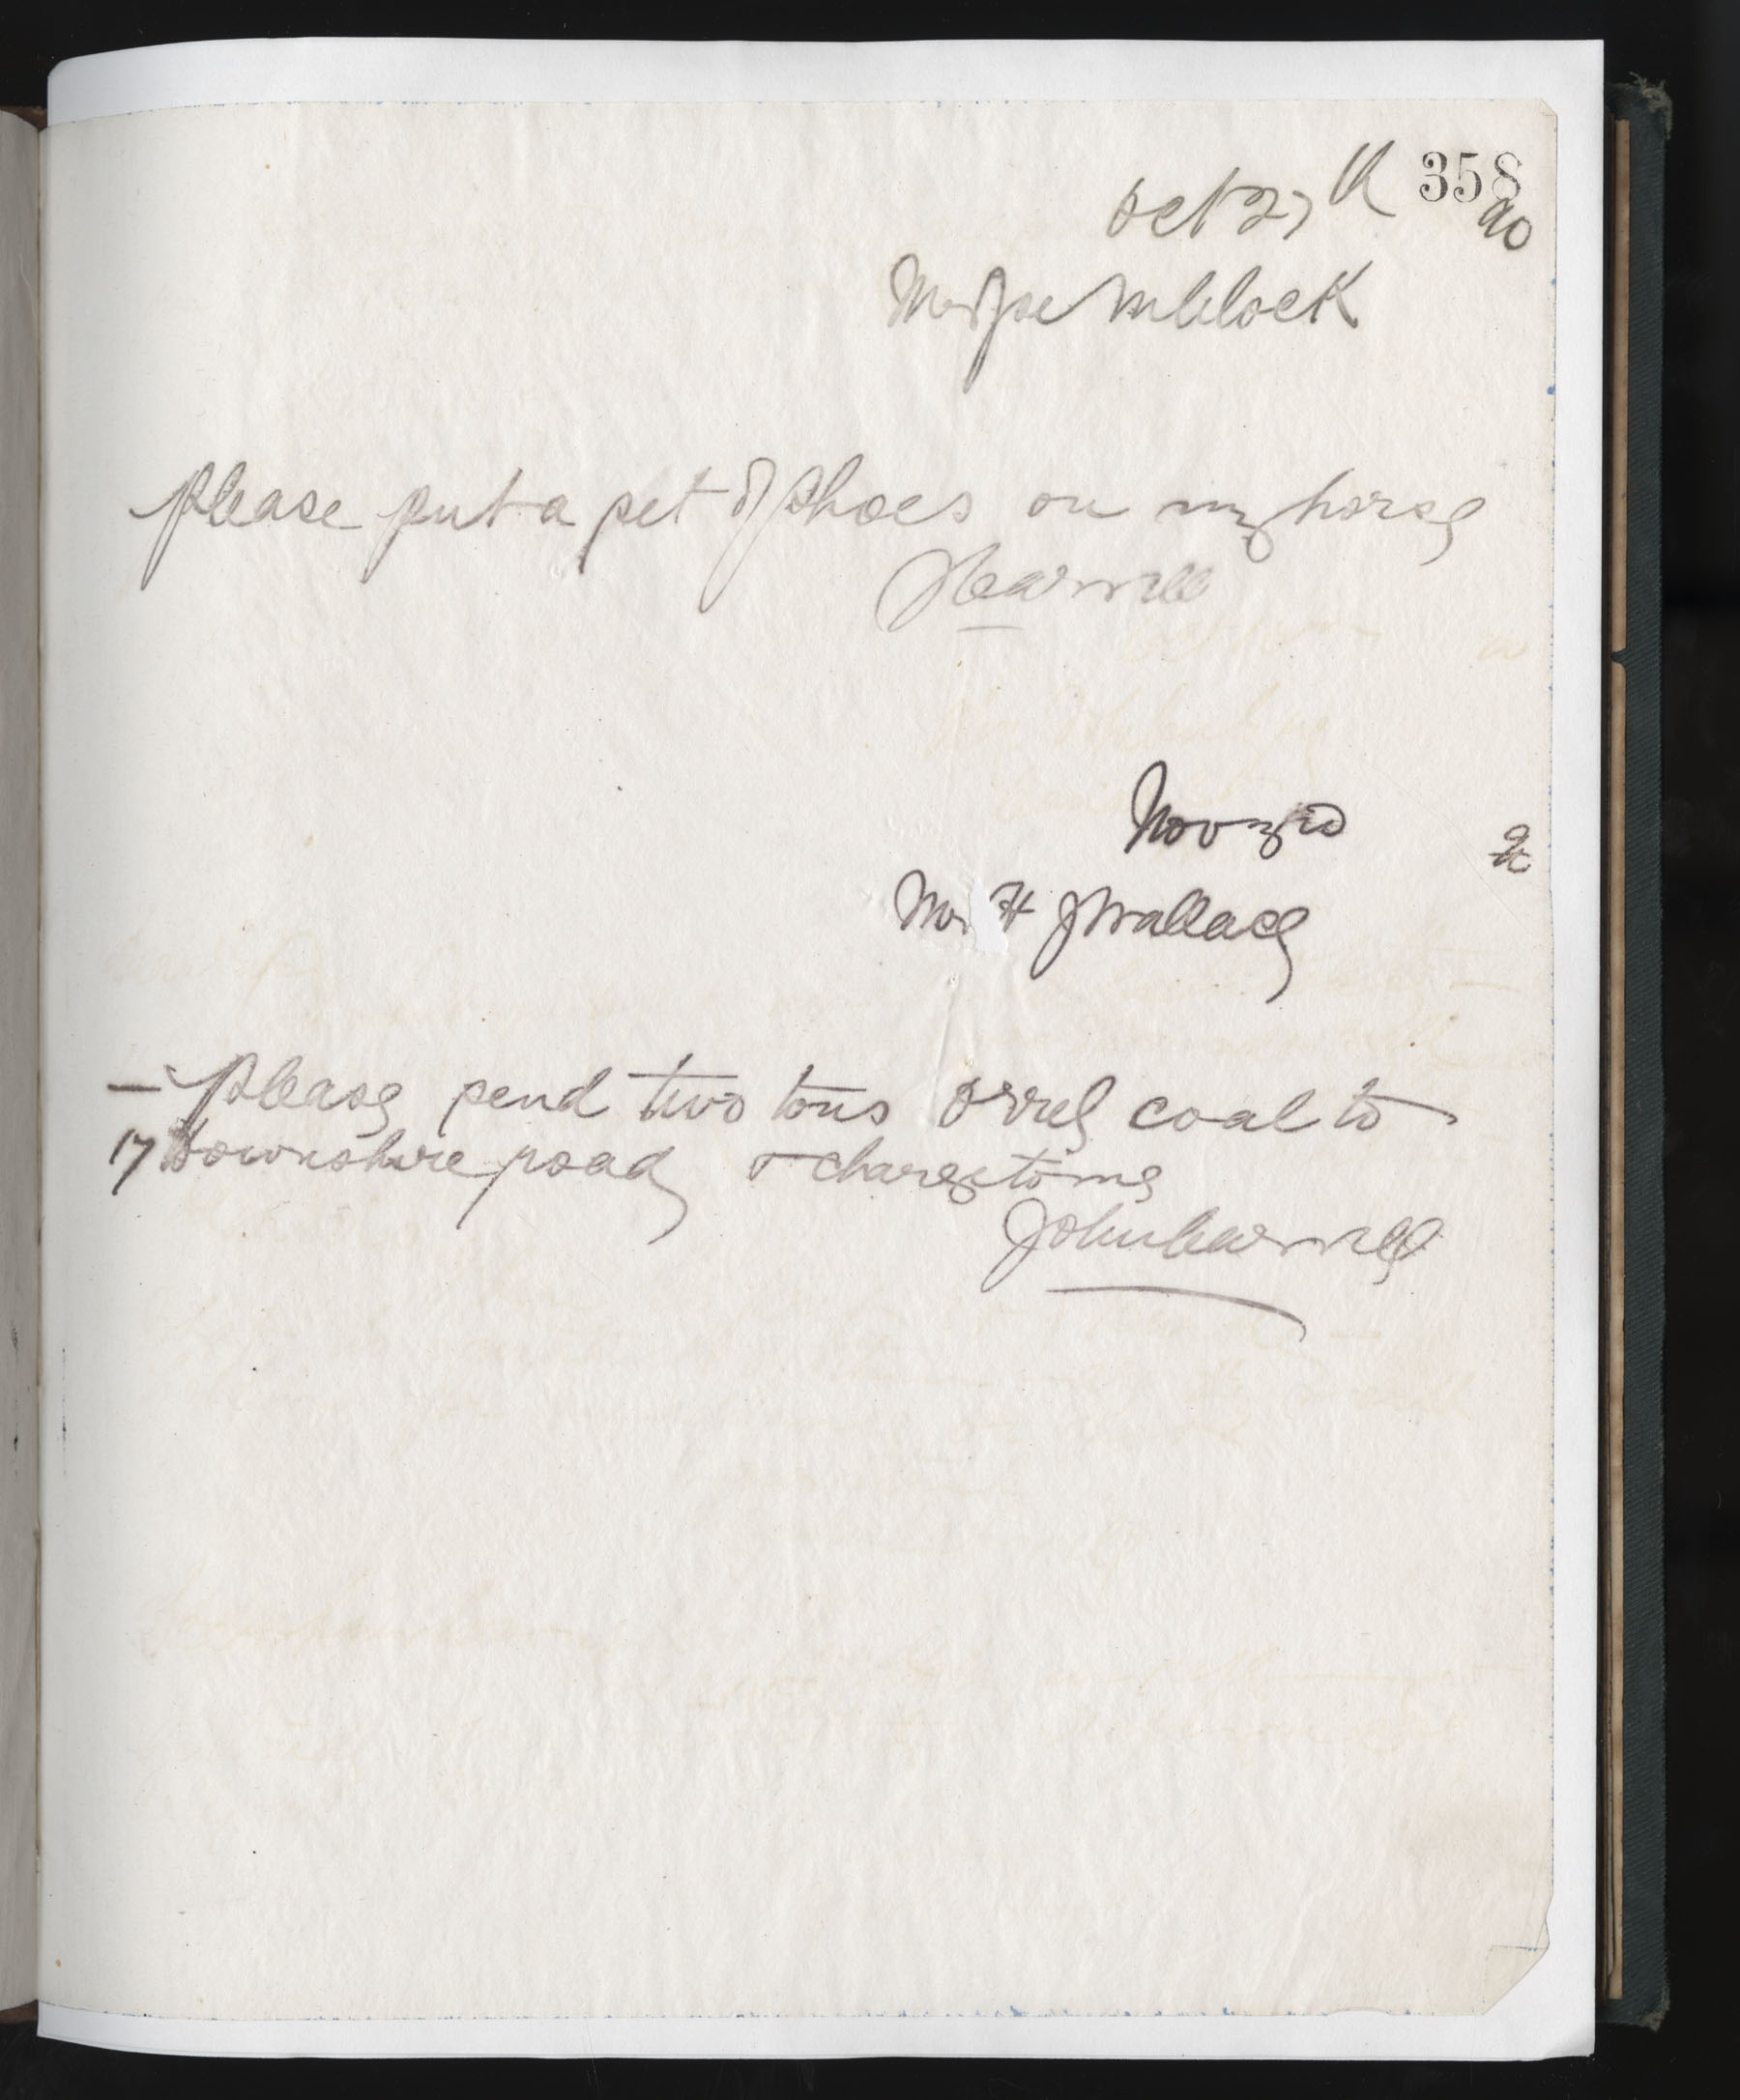 358
Oct 27th 90
Mr Joe McClock
Please put a set of shoes on my horse
J Carvill
Nov 3rd
Mr H J Wallace
Please send two tons Orrel coal to
17 Downshire road & charge to me
John Carvill